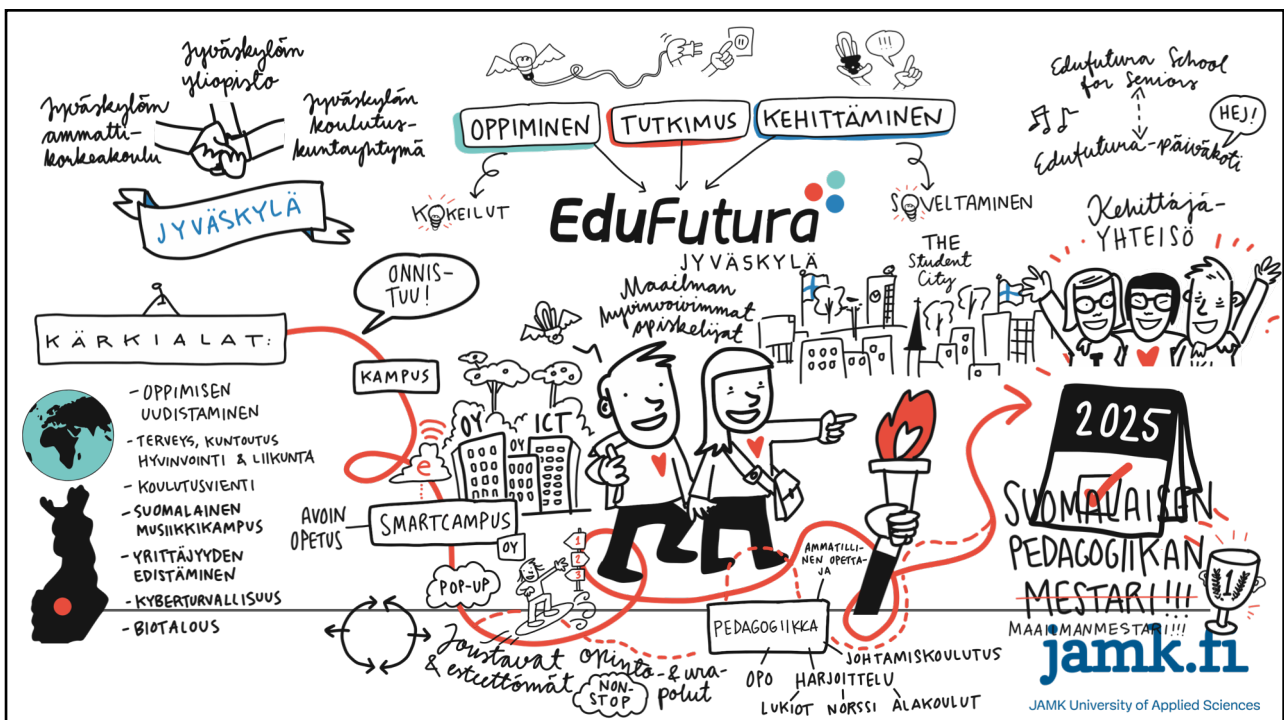 Jyväskylän
yliopisto
Jyväskylän
ammatti-
korkeakoulu
Jyväskylän
koulutus-
kuntayhtymä
JYVÄSKYLÄ
OPPIMINEN
TUTKIMUS
KEHITTÄMINEN
!!!
KOKEILUT
SOVELTAMINEN
EduFutura
JYVÄSKYLÄ
Edufutura School
for Seniors
HEJ!
Edufutura-päiväkoti
Kehittäjä-
YHTEISÖ
THE
Student
City
Maailman
hyvinvoivimmat
opiskelijat
ONNIS-
TUU!
KÄRKIALAT:
- OPPIMISEN
UUDISTAMINEN
- TERVEYS, KUNTOUTUS
HYVINVOINTI & LIIKUNTA
- KOULUTUSVIENTI
- SUOMALAINEN
MUSIIKKIKAMPUS
- YRITTÄJYYDEN
EDISTÄMINEN
- KYBERTURVALLISUUS
- BIOTALOUS
KAMPUS
OY
OY
ICT
e
AVOIN
OPETUS
SMARTCAMPUS
OY
POP-UP
1
2
3
Joustavat opinto- & ura-
& esteettömät polut
NON-
STOP
AMMATILLI-
NEN OPETTA-
JA
PEDAGOGIIKKA
JOHTAMISKOULUTUS
OPO HARJOITTELU
LUKIOT NORSSI ALAKOULUT
2025
SUOMALAISEN
PEDAGOGIIKAN
MESTARI!!!
MAAILMANMESTARI!!!
1
jamk.fi
JAMK University of Applied Sciences